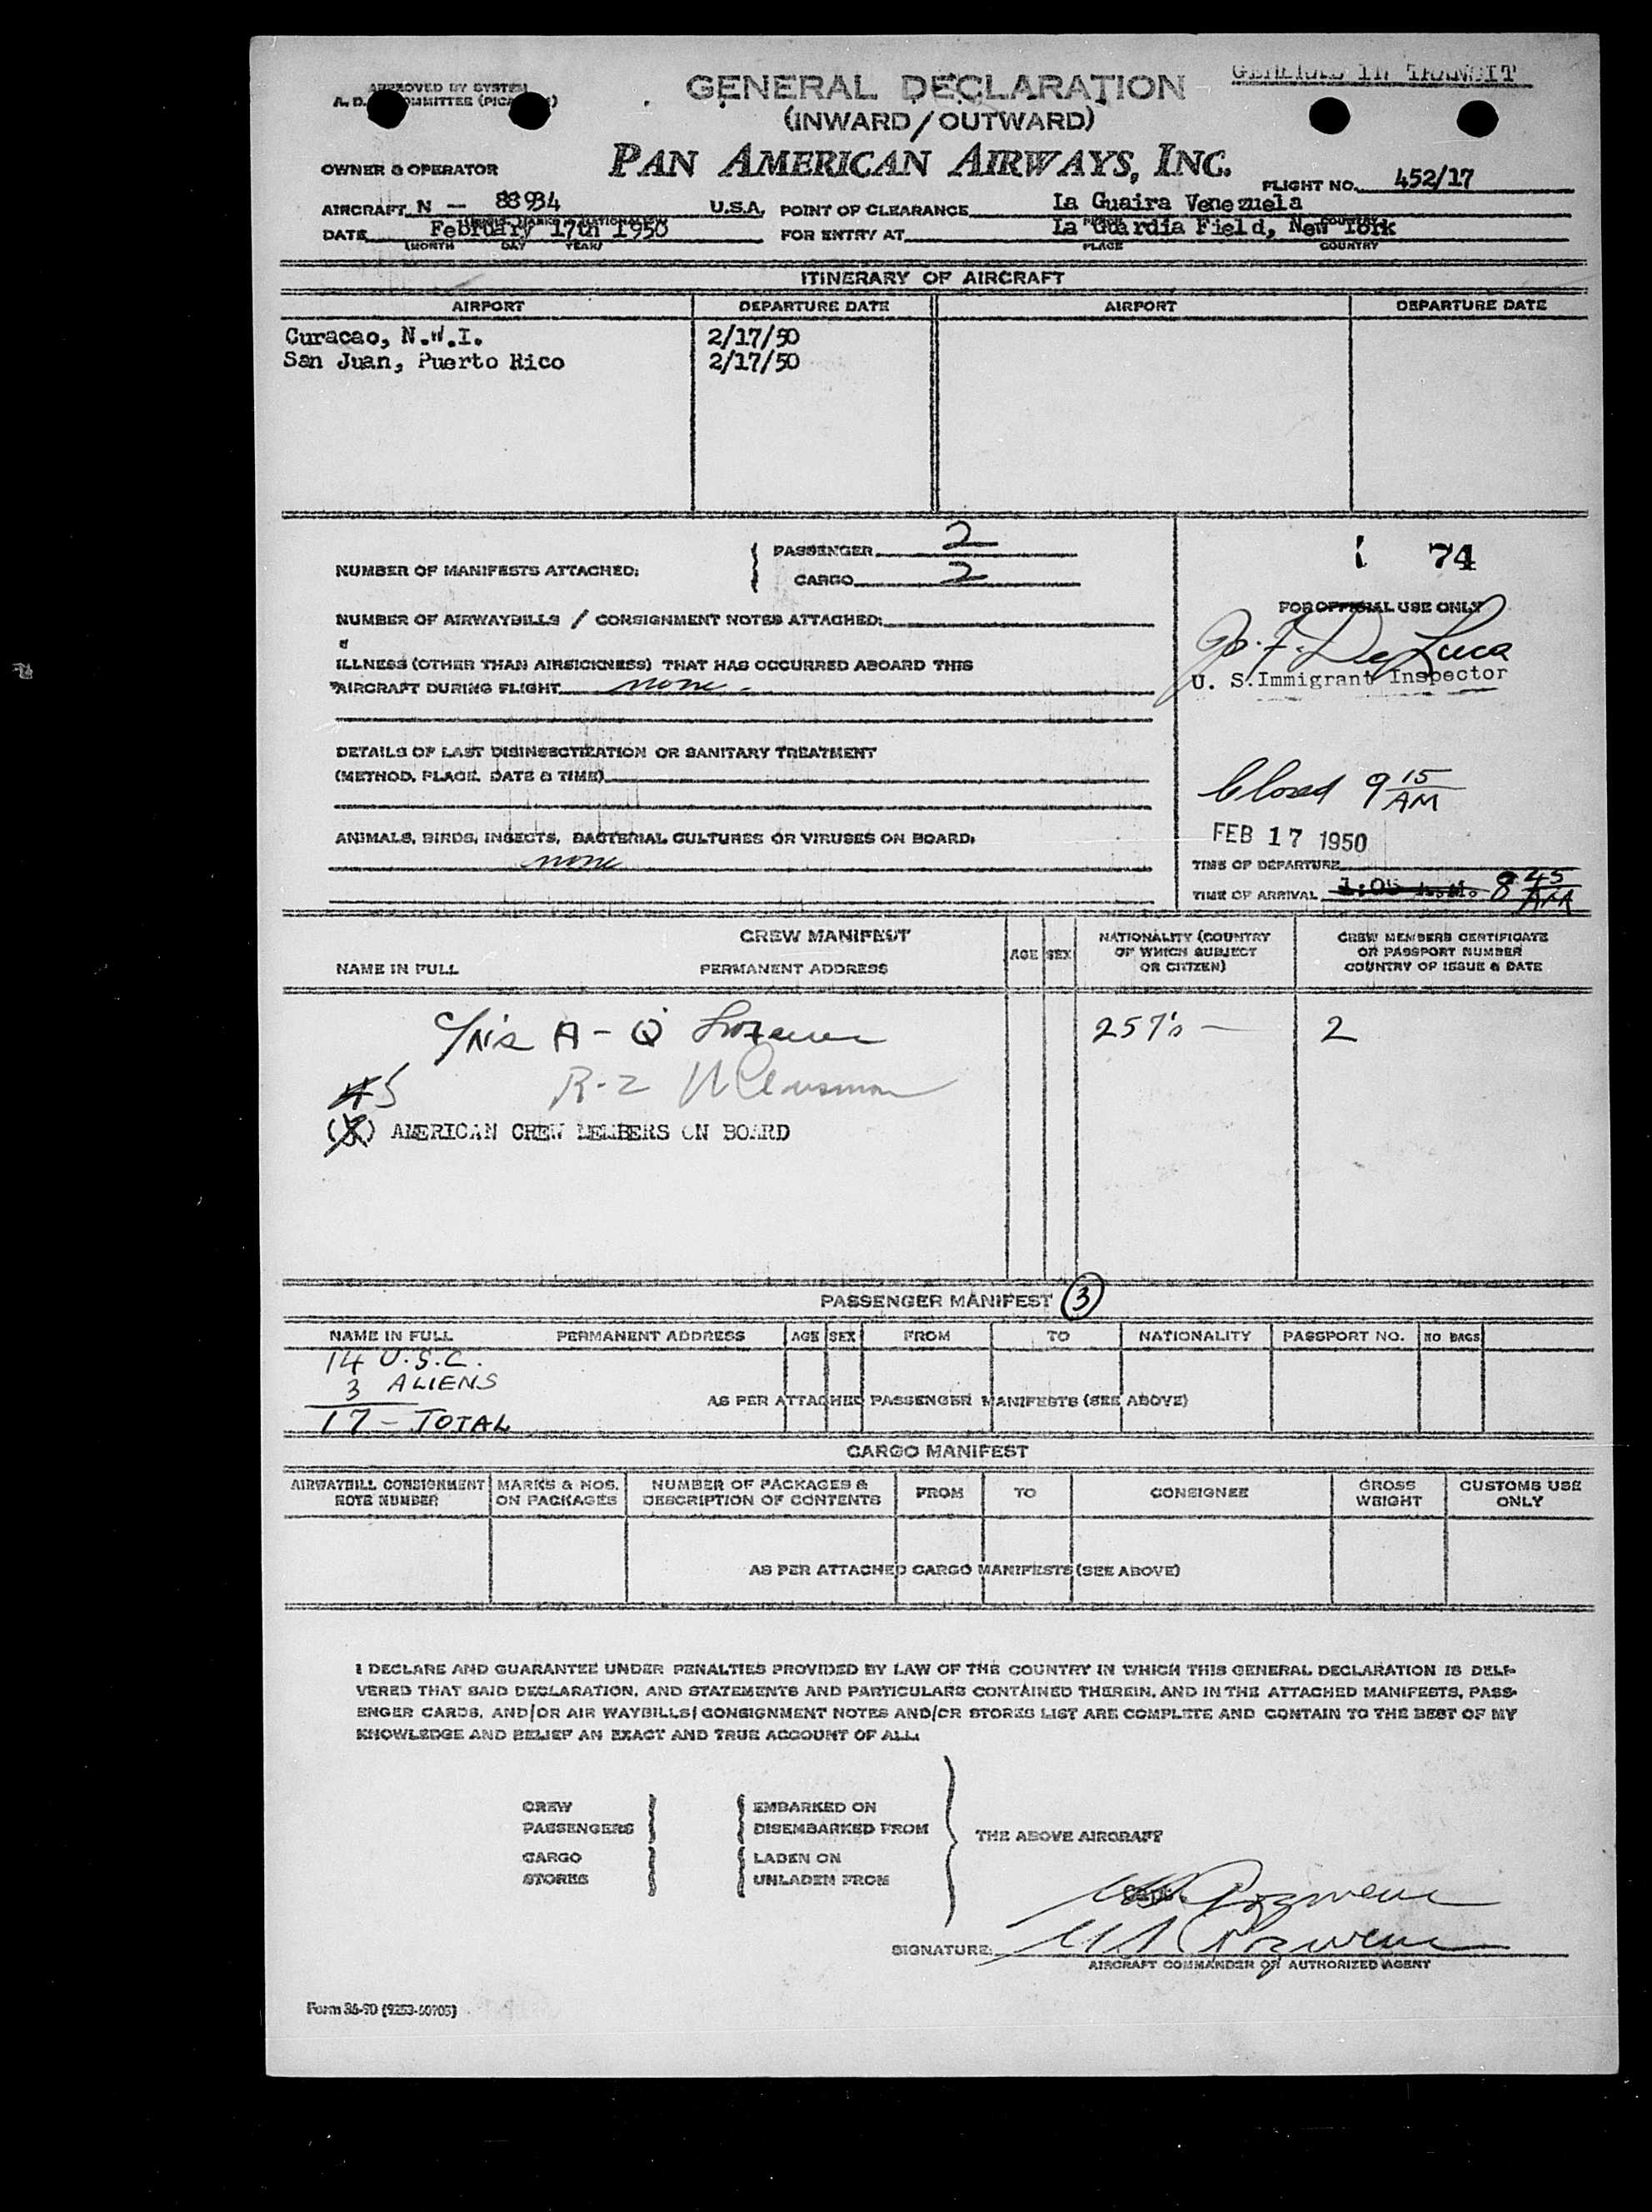 GENERAL IN TRANSIT
APPROVED BY SYSTEM
GENERAL DECLARATION
(INWARD/OUTWARD)
OWNER & OPERATOR
PAN AMERICAN AIRWAYS, INC.
FLIGHT NO. 452/17
AIRCRAFT N - 88934 U.S.A. POINT OF CLEARANCE La Guaira Venezuela
DATE February 17th 1950 FOR ENTRY AT La Guardia Field, New York
(MONTH DAY YEAR) PLACE COUNTRY
ITINERARY OF AIRCRAFT
AIRPORT DEPARTURE DATE AIRPORT DEPARTURE DATE
Curacao, N.W.I. 2/17/50
San Juan, Puerto Rico 2/17/50
NUMBER OF MANIFESTS ATTACHED: PASSENGER 2
CARGO 2
74
NUMBER OF AIRWAYBILLS / CONSIGNMENT NOTES ATTACHED:
FOR OFFICIAL USE ONLY
De Luca
U. S. Immigrant Inspector
ILLNESS (OTHER THAN AIRSICKNESS) THAT HAS OCCURRED ABOARD THIS
AIRCRAFT DURING FLIGHT none -
DETAILS OF LAST DISINSECTIZATION OR SANITARY TREATMENT
(METHOD, PLACE, DATE & TIME)
Closed 9 15 AM
FEB 17 1950
ANIMALS, BIRDS, INSECTS, BACTERIAL CULTURES OR VIRUSES ON BOARD:
none
TIME OF DEPARTURE
TIME OF ARRIVAL 8 45 AM
CREW MANIFEST
NAME IN FULL PERMANENT ADDRESS AGE SEX NATIONALITY (COUNTRY OF WHICH SUBJECT OR CITIZEN) CREW MEMBERS CERTIFICATE OR PASSPORT NUMBER COUNTRY OF ISSUE & DATE
A - Q 257's - 2
R-Z
5
AMERICAN CREW MEMBERS ON BOARD
PASSENGER MANIFEST 3
NAME IN FULL PERMANENT ADDRESS AGE SEX FROM TO NATIONALITY PASSPORT NO. NO BAGS
14 U.S.C.
3 ALIENS
17 - TOTAL
AS PER ATTACHED PASSENGER MANIFESTS (SEE ABOVE)
CARGO MANIFEST
AIRWAYBILL CONSIGNMENT NOTE NUMBER MARKS & NOS. ON PACKAGES NUMBER OF PACKAGES & DESCRIPTION OF CONTENTS FROM TO CONSIGNEE GROSS WEIGHT CUSTOMS USE ONLY
AS PER ATTACHED CARGO MANIFESTS (SEE ABOVE)
I DECLARE AND GUARANTEE UNDER PENALTIES PROVIDED BY LAW OF THE COUNTRY IN WHICH THIS GENERAL DECLARATION IS DELI-
VERED THAT SAID DECLARATION, AND STATEMENTS AND PARTICULARS CONTAINED THEREIN, AND IN THE ATTACHED MANIFESTS, PASS-
ENGER CARDS, AND/OR AIR WAYBILLS/CONSIGNMENT NOTES AND/OR STORES LIST ARE COMPLETE AND CONTAIN TO THE BEST OF MY
KNOWLEDGE AND BELIEF AN EXACT AND TRUE ACCOUNT OF ALL:
CREW EMBARKED ON
PASSENGERS DISEMBARKED FROM
THE ABOVE AIRCRAFT
CARGO LADEN ON
STORES UNLADEN FROM
SIGNATURE:
AIRCRAFT COMMANDER OR AUTHORIZED AGENT